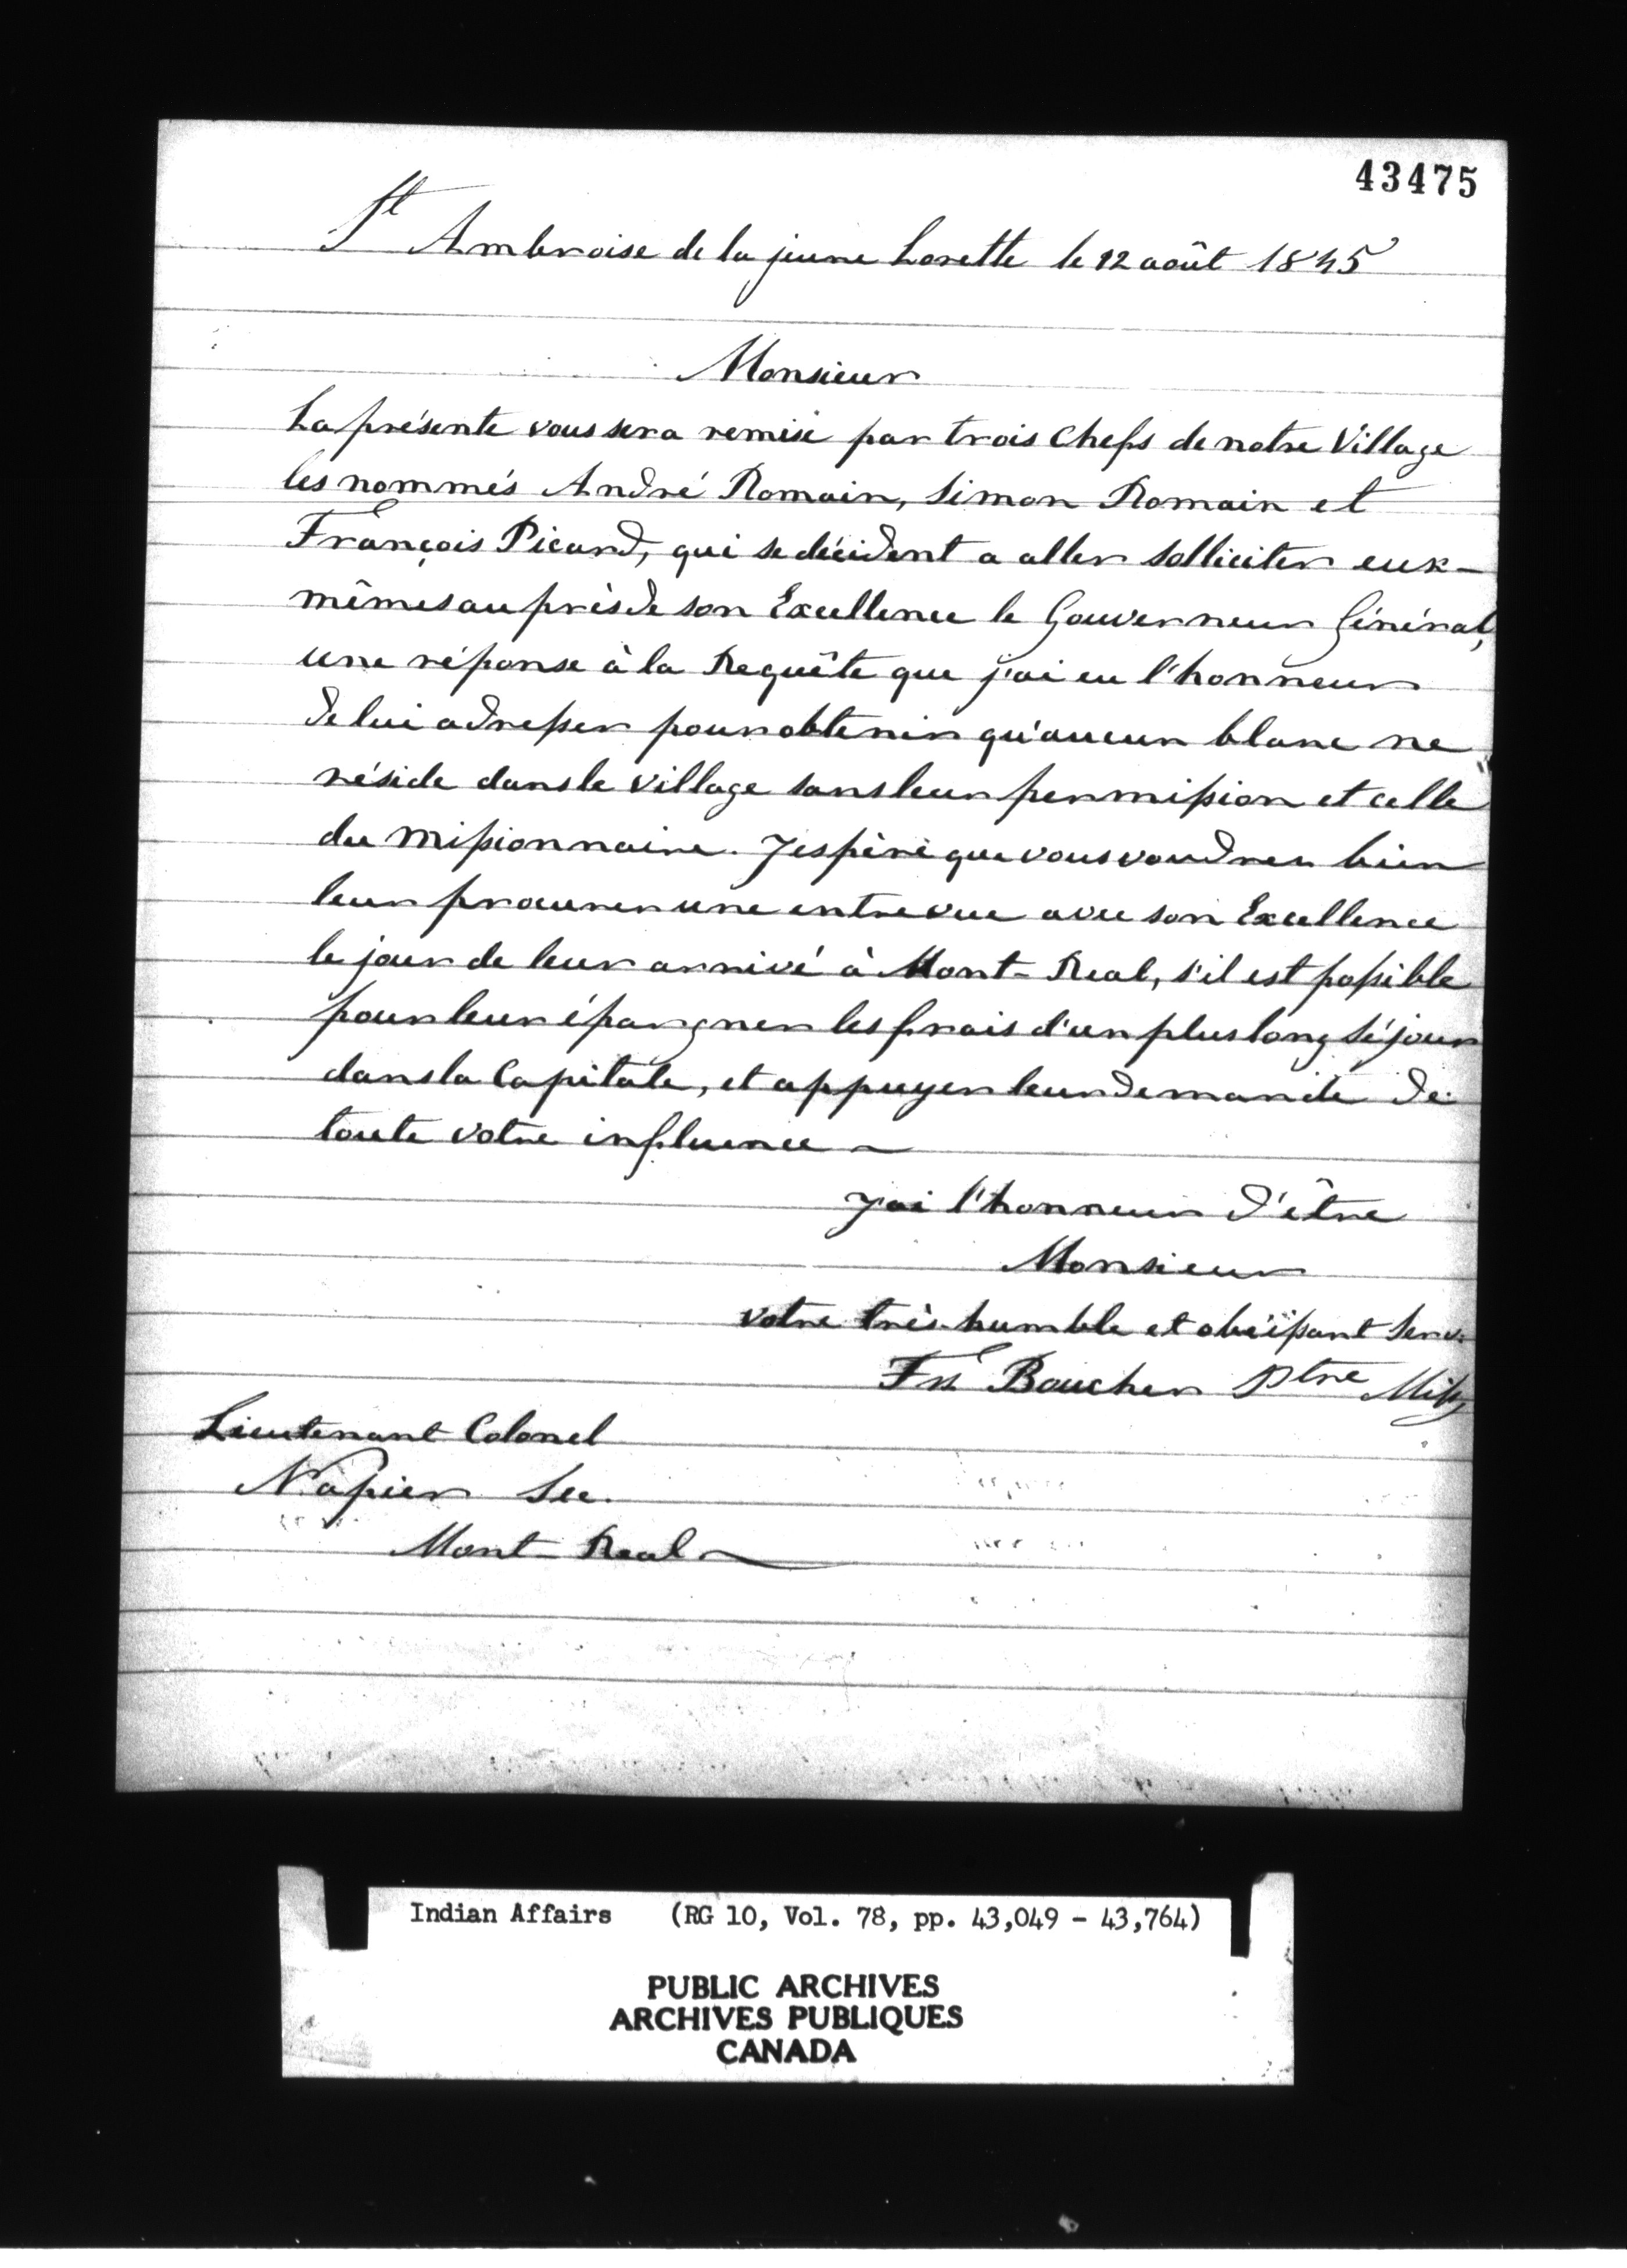 43475
St Ambroise de la jeune Lorette le 12 août 1845
Monsieur
La présente vous sera remise par trois Chefs de notre Village
les nommés André Romain, Simon Romain et
François Picard, qui se décident a aller solliciter eux-
mêmes auprès de son Excellence le Gouverneur Général,
une réponse à la Requête que j'ai eu l'honneur
de lui adresser pour obtenir qu'aucun blanc ne
réside dans le village sans leur permission et celle
du Missionnaire. J'espère que vous voudrez bien
leur procurer une entrevue avec son Excellence
le jour de leur arrivé à Mont-Real, s'il est possible
pour leur épargner les frais d'un plus long séjour
dans la Capitale, et appuyer leur demande de
toute votre influence –
J'ai l'honneur d'être
Monsieur
votre très humble et obéïssant Serv.
Frs Boucher Ptre Miss,
Lieutenant Colonel
Napier Sec.
Mont-Real
Indian Affairs (RG 10, Vol. 78, pp. 43,049 - 43,764)
PUBLIC ARCHIVES
ARCHIVES PUBLIQUES
CANADA